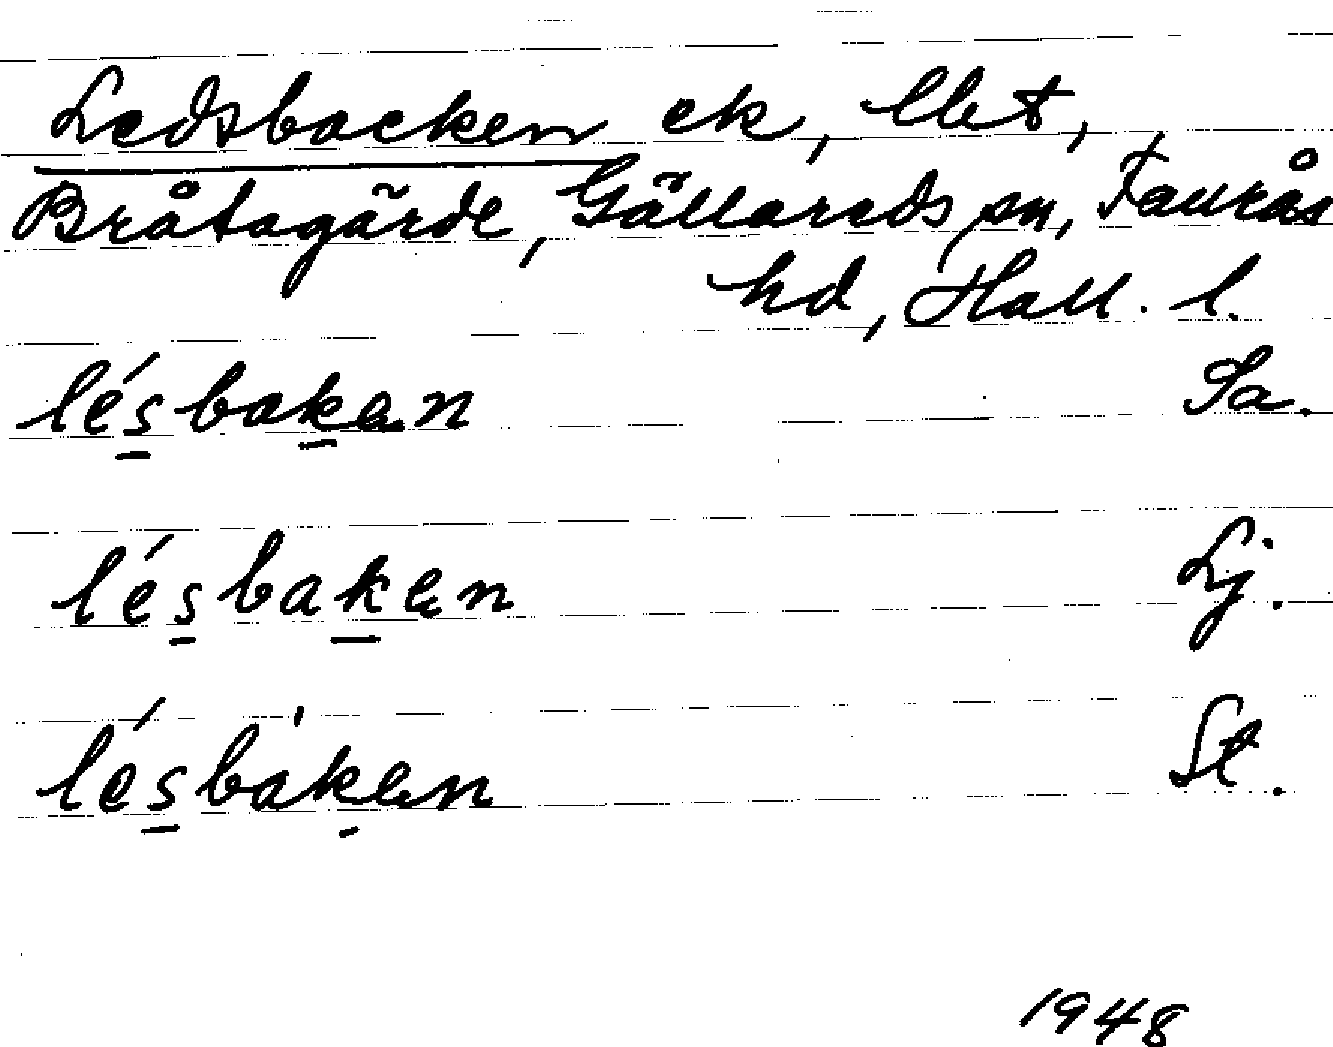 Ledsbacken ek, lbt,
Bråtagärde, Gällareds sn, Faurås
hd, Hall. l.
lésbaken Sa.
lésbaken Lj.
lésbàken St.
1948